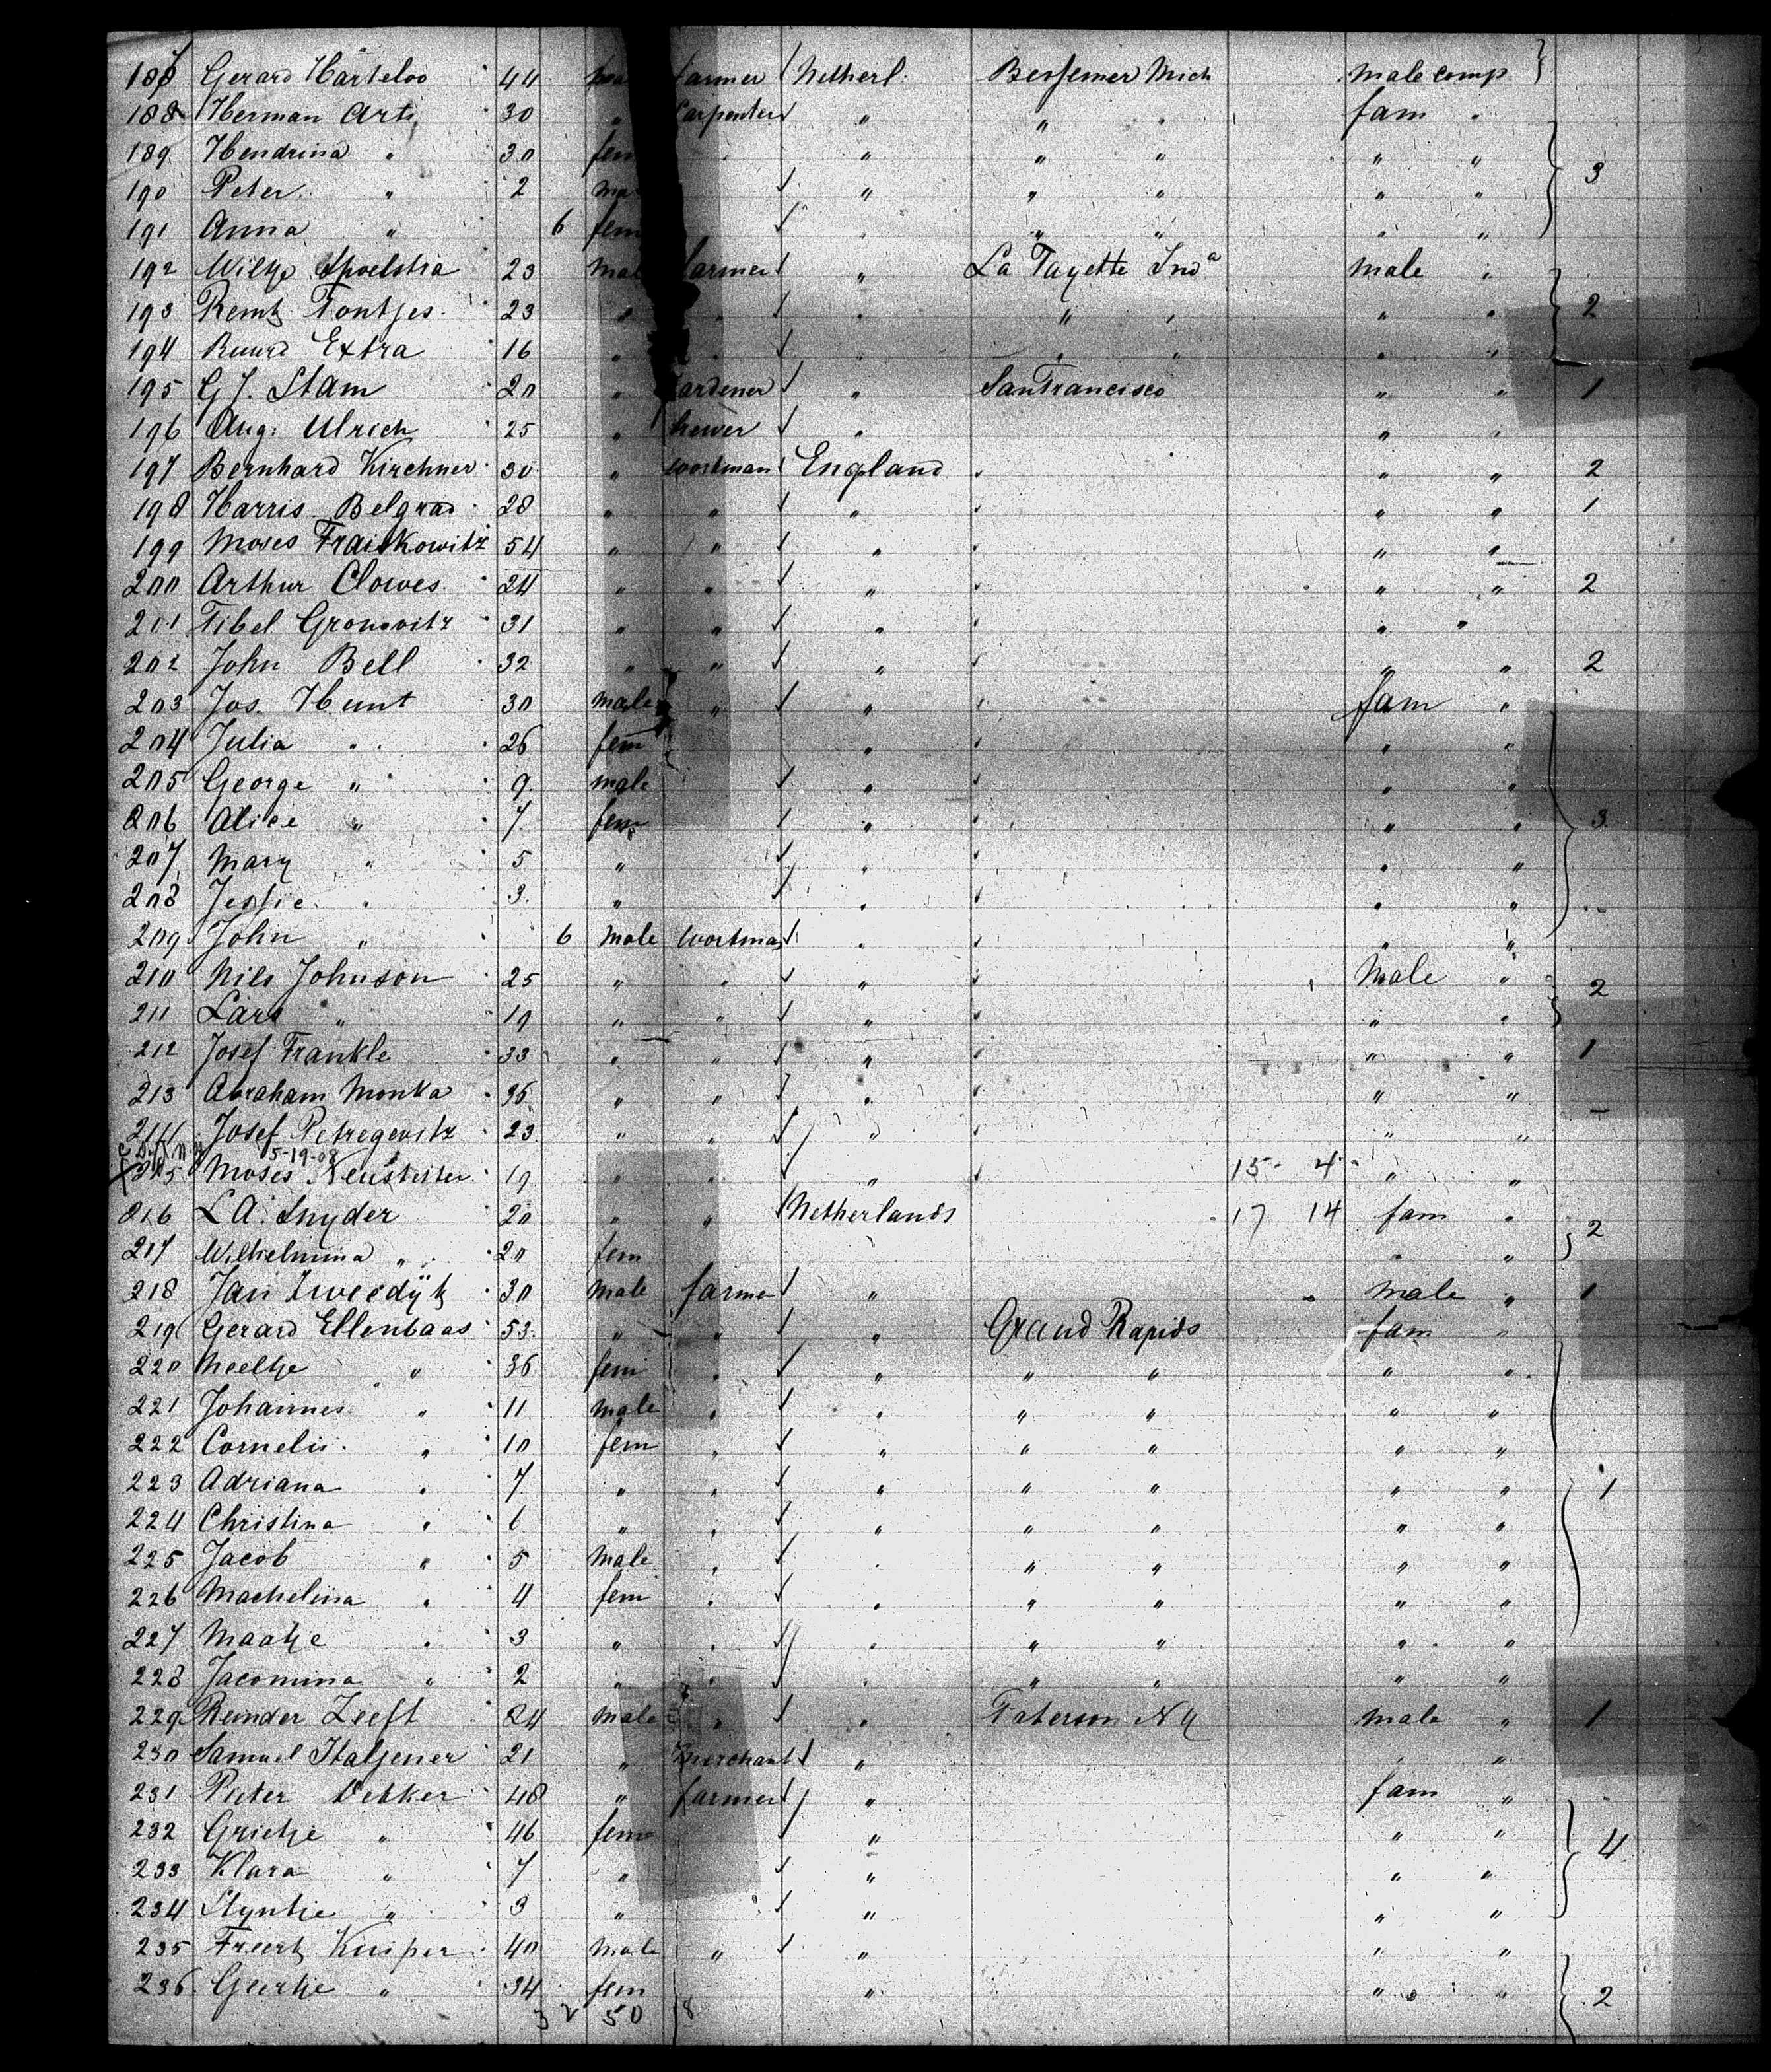 187 Gerard Harteloo 44 farmer Netherl. Bessemer Mich male comp
188 Herman Arts 30 " Carpenter " " " fam "
189 Hendrina " 30 fem " " " " " 3
190 Peter " 2 ma " " " " "
191 Anna " 6 fem " " " " "
192 Wiltje Spoelstra 23 mal farmer " La Fayette Ind a male "
193 Remt Tontjes 23 " " " " " " " 2
194 Ruurd Extra 16 " " " " " " "
195 G J. Stam 20 " gardener " San Francisco " " 1
196 Aug: Ulrich 25 " brewer " " "
197 Bernhard Kirchner 30 " workman England " " 2
198 Harris Belgrad 28 " " " " " 1
199 Moses Fraitkowitz 54 " " " " "
200 Arthur Clowes 24 " " " " " 2
201 Tibel Gronovitz 31 " " " " "
202 John Bell 32 " " " " " 2
203 Jos. Hunt 30 male " " fam "
204 Julia " 26 fem " " "
205 George " 9 male " " "
206 Alice " 7 fem " " " 3
207 Mary " 5 " " " "
208 Jessie " 3 " " " "
209 John " 6 male workma " " "
210 Nils Johnson 25 " " " male " 2
211 Lars " 19 " " " " "
212 Josef Frankle 33 " " " " " 1
213 Abraham Monka 36 " " " " "
Josef Petregevitz 23 " " " " "
5-19-08
Moses Neustetter 19 " " " 15 - 4 " "
216 L A. Snyder 20 " " Netherlands 17 14 fam " 2
217 Wilhelmina " 20 fem " "
218 Jan Zweedÿk 30 male farmer " male " 1
219 Gerard Ellenbaas 53 " " " Grand Rapids fam "
220 Neeltje " 36 fem " " " " " "
221 Johannes " 11 male " " " " " "
222 Cornelis " 10 fem " " " " " "
223 Adriana " 7 " " " " " " " 1
224 Christina " 6 " " " " " " "
225 Jacob " 5 male " " " " " "
226 Machelina " 4 fem " " " " " "
227 Maatje " 3 " " " " " " "
228 Jacomina " 2 " " " " " " "
229 Reinder Zeeft 24 male " " Paterson N Y male " 1
230 Samuel Italjener 21 " merchant " " "
231 Pieter Dekker 48 " farmer " fam "
232 Grietje " 46 fem " " " 4
233 Klara " 7 " " " "
234 Styntje " 3 " " " "
235 Freerk Kuiper 40 male " " " "
236 Geertje " 34 fem " " " 2
3 2 50 8